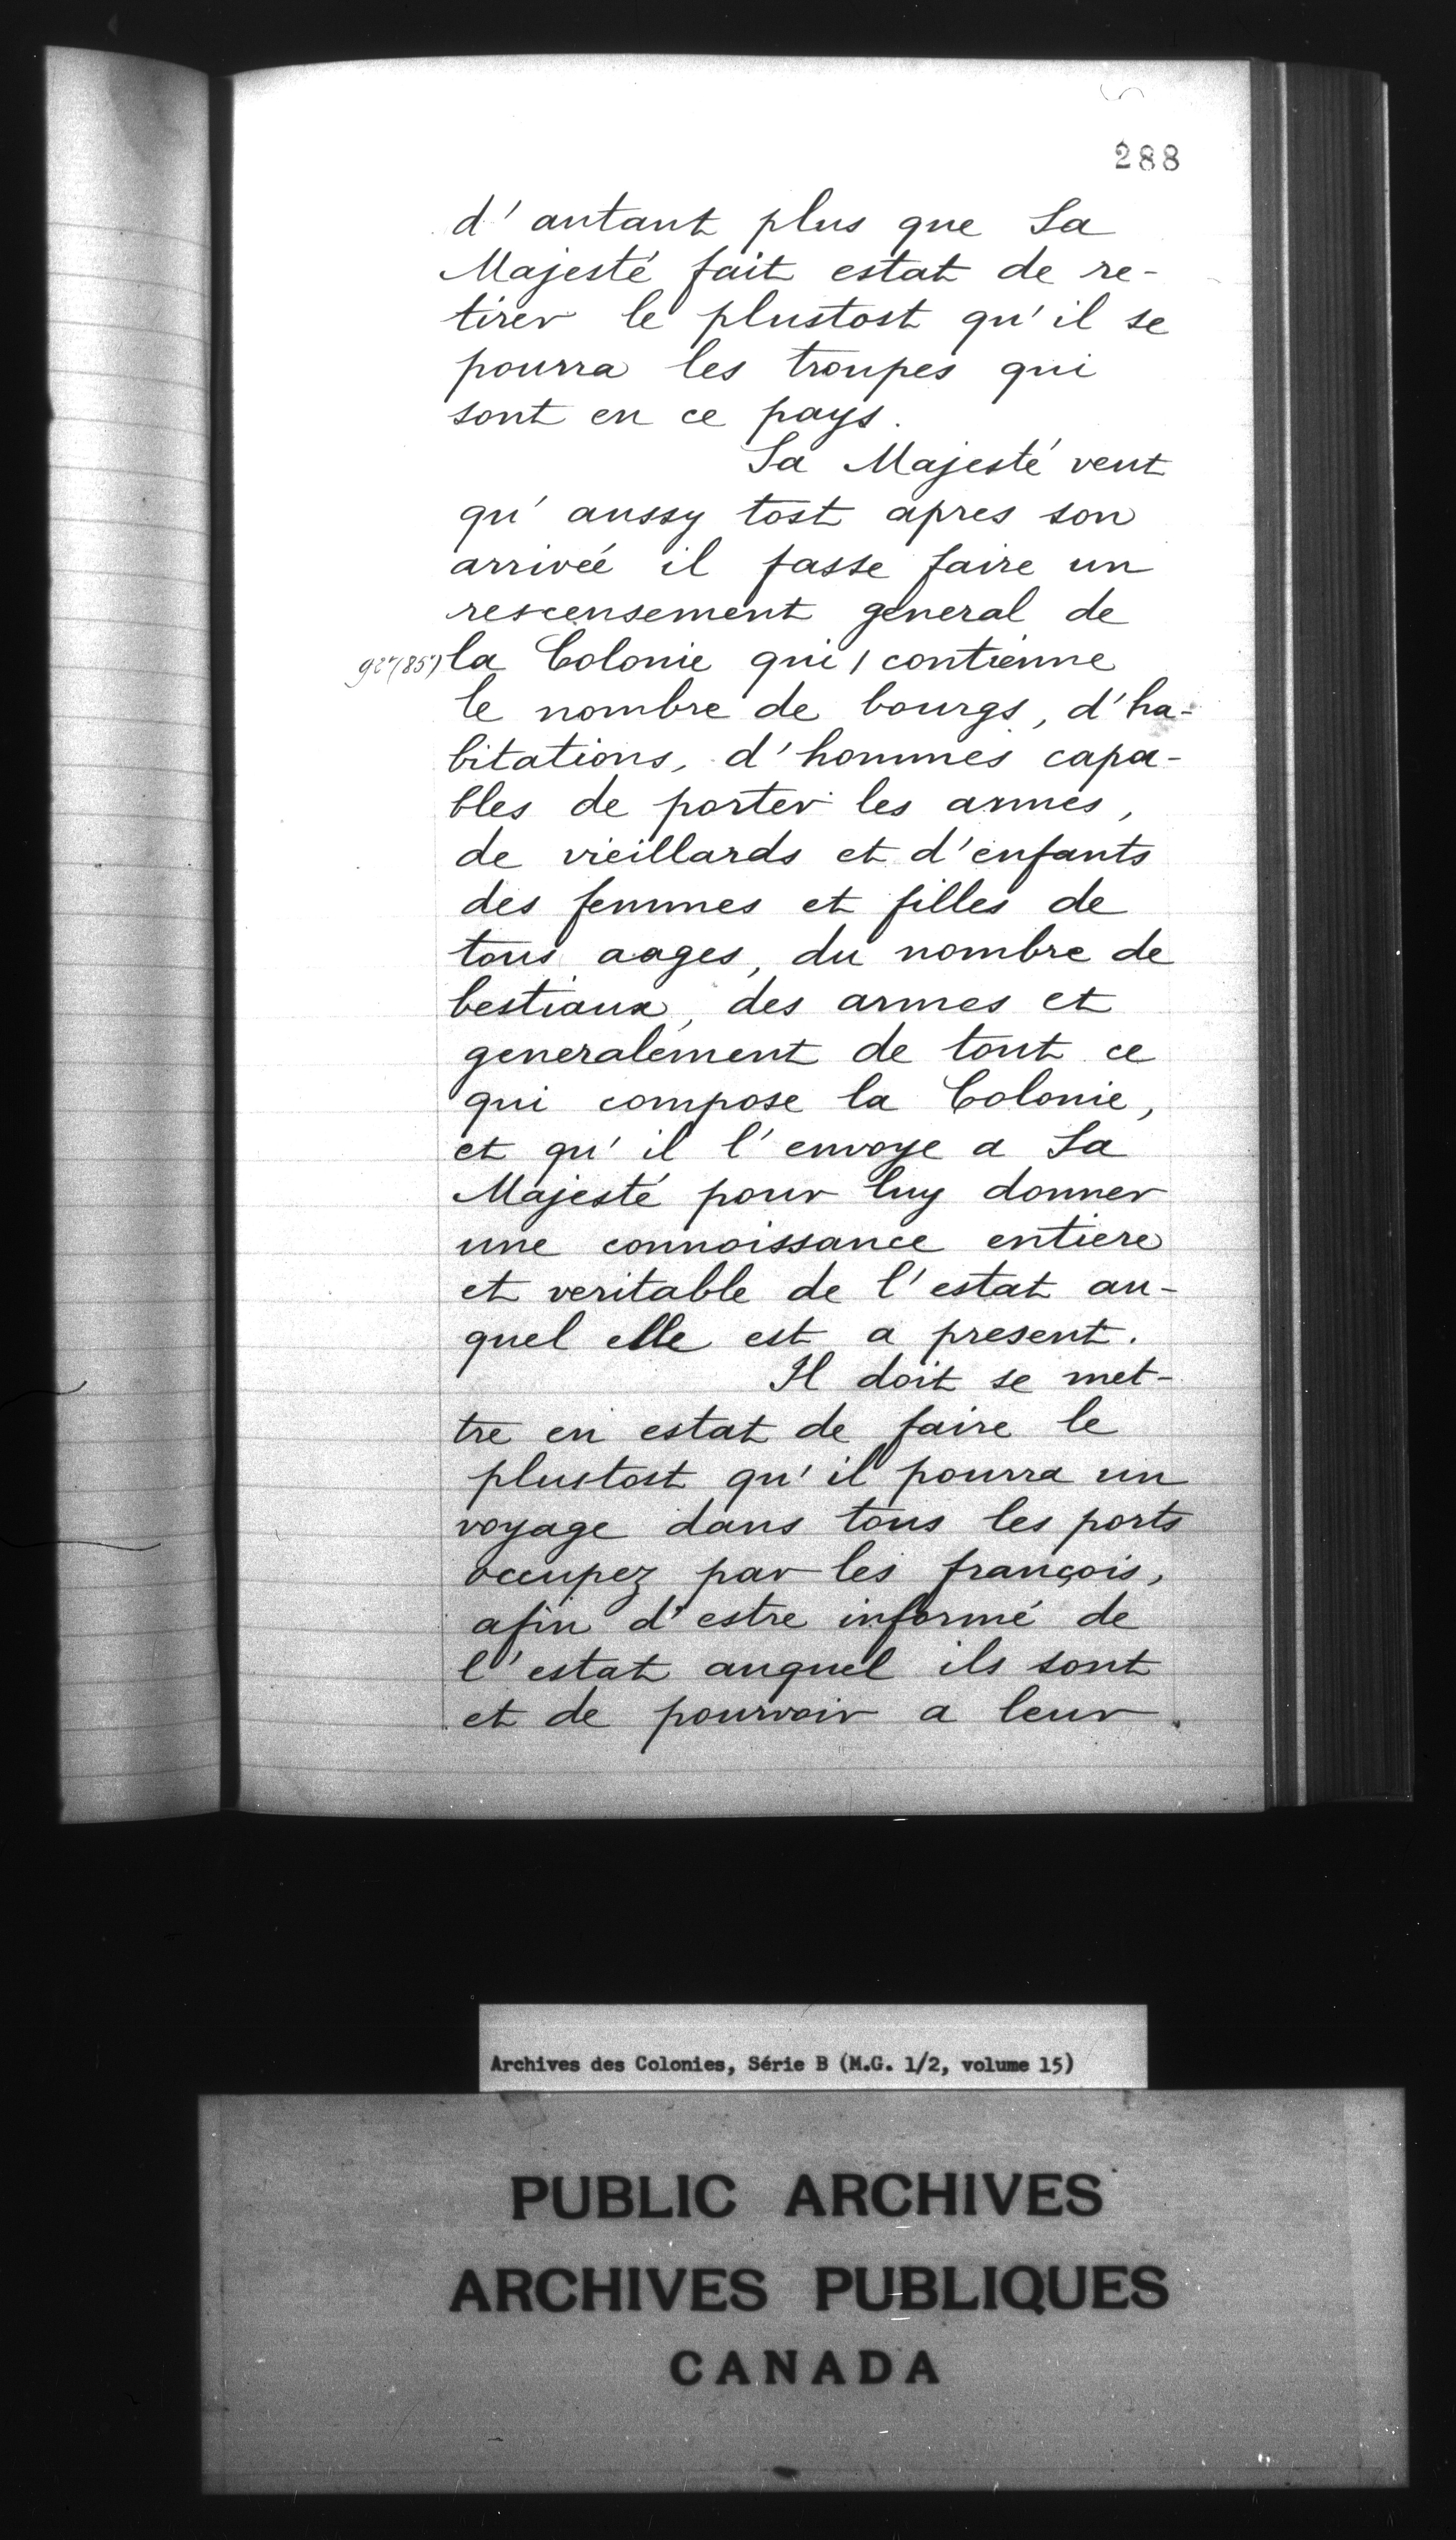 288
d'autant plus que Sa
Majesté fait estat de re-
tirer le plustost qu'il se
pourra les troupes qui
sont en ce pays.
Sa Majesté veut
qu'aussy tost apres son
arrivée il fasse faire un
rescensement general de
la Colonie qui / contienne
le nombre de bourgs, d'ha-
bitations, d'hommes capa-
bles de porter les armes,
de vieillards et d'enfants
des femmes et filles de
tous aages, du nombre de
bestiaux, des armes et
generalement de tout ce
qui compose la Colonie,
et qu'il l'envoye a Sa
Majesté pour luy donner
une connoissance entiere
et veritable de l'estat au-
quel elle est a present.
Il doit se met-
tre en estat de faire le
plustost qu'il pourra un
voyage dans tous les ports
occupez par les françois,
afin d'estre informé de
l'estat auquel ils sont
et de pourvoir a leur
Archives des Colonies, Série B (M.G. 1/2, volume 15)
PUBLIC ARCHIVES
ARCHIVES PUBLIQUES
CANADA